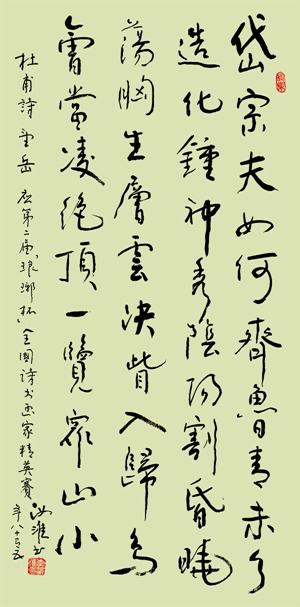 岱宗夫如何齊魯青未了
造化鍾神秀陰陽割昏曉
蕩胸生層雲決眥入歸鳥
會當凌絕頂一覽眾山小
杜甫詩望岳 應第二屆"琅琊杯"全國詩书画家精英賽
汝淮书
年八十